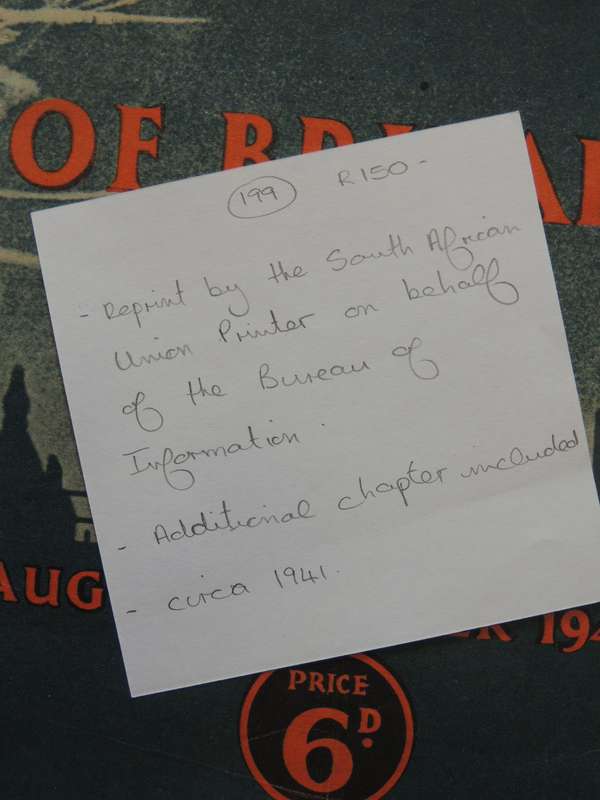 OF BRI AI
199 R150-
- Reprint by the South African
Union Printer on behalf
of the Bureau of
Information.
- Additional chapter included
- circa 1941.
AUG ER 194
PRICE
6D.